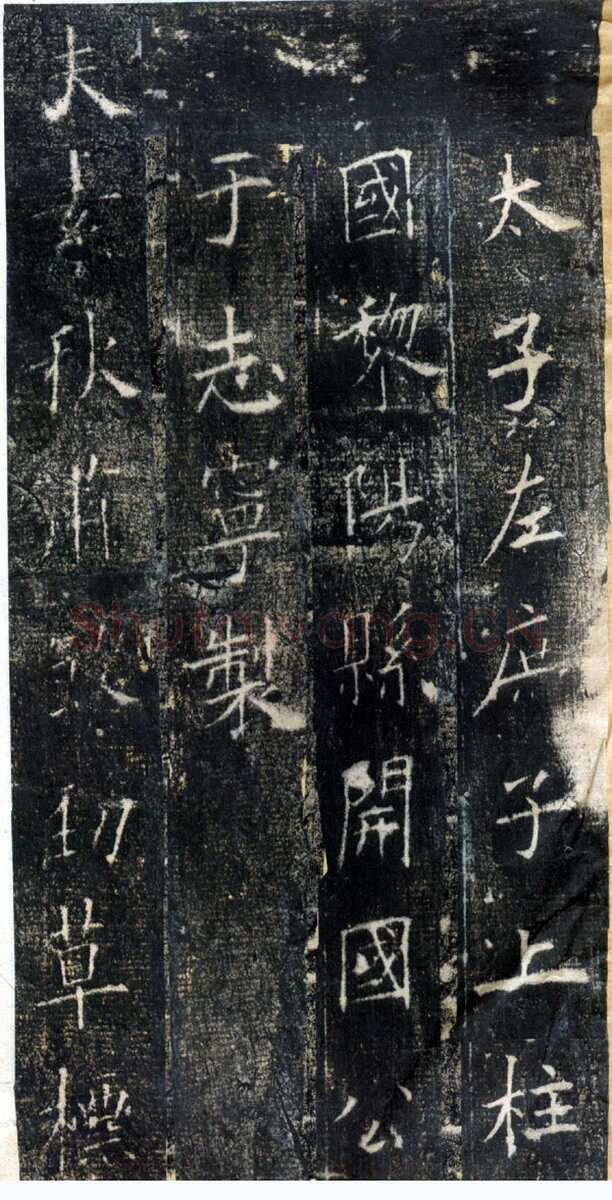 太子左庶子上柱
國黎陽縣開國公
于志寧製
夫素秋肅煞勁草標
Shufawang.CN